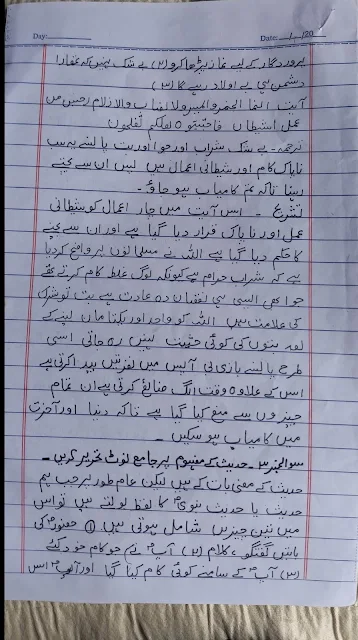 Day: Date: / /20
پروردگار کے لیے نماز پڑھا کرو (۲) بے شک نہیں کہ تمھارا
دشمن ہی بے اولاد رہے گا (۳)
آیت انما الخمر والمیسر ولا انصاب والازلام رجس من
عمل الشیطان فاجتنبوہ لعلکم تفلحون
ترجمہ - بے شک شراب اور جوا اور بت پا نسے یہ سب
ناپاک کام اور شیطانی اعمال ہیں پس ان سے بچتے
رہنا تاکہ تم کامیاب ہو جاؤ -
تشریح - اس آیت میں چار اعمال کو شیطانی
عمل اور ناپاک قرار دیا گیا ہے اور ان سے بچنے
کا حکم دیا گیا ہے اللہ نے مسلمانوں پر واضح کردیا
ہے کہ شراب حرام ہے کیونکہ لوگ غلط کام کرتے تھے
جوا بھی ایسی ہی نقصان دہ عادت ہے بت تو شرک
کی علامت ہیں اللہ کو واحد اور یکتا مان لینے کے
بعد بتوں کی کوئی حیثیت نہیں رہ جاتی اسی
طرح پانسے بازی بھی آپس میں نفرتیں پیدا کرتی ہے
اس کے علاوہ وقت الگ ضائع کرتی ہے ان تمام
چیزوں سے منع کیا گیا ہے تاکہ دنیا اور آخرت
میں کامیاب ہو سکیں -
سوال نمبر ۳ - حدیث کے مفہوم پر جامع نوٹ تحریر کریں -
حدیث کے معنی بات کے ہیں لیکن عام طور پر جب ہم
حدیث یا حدیث نبوی کا لفظ بولتے ہیں تو اس
میں تین چیزیں شامل ہوتی ہیں (۱) حضورؐ کی
باتیں گفتگو، کلام (۲) آپؐ نے جو کام خود کئے
(۳) آپؐ کے سامنے کوئی کام کیا گیا اور آپؐ اس